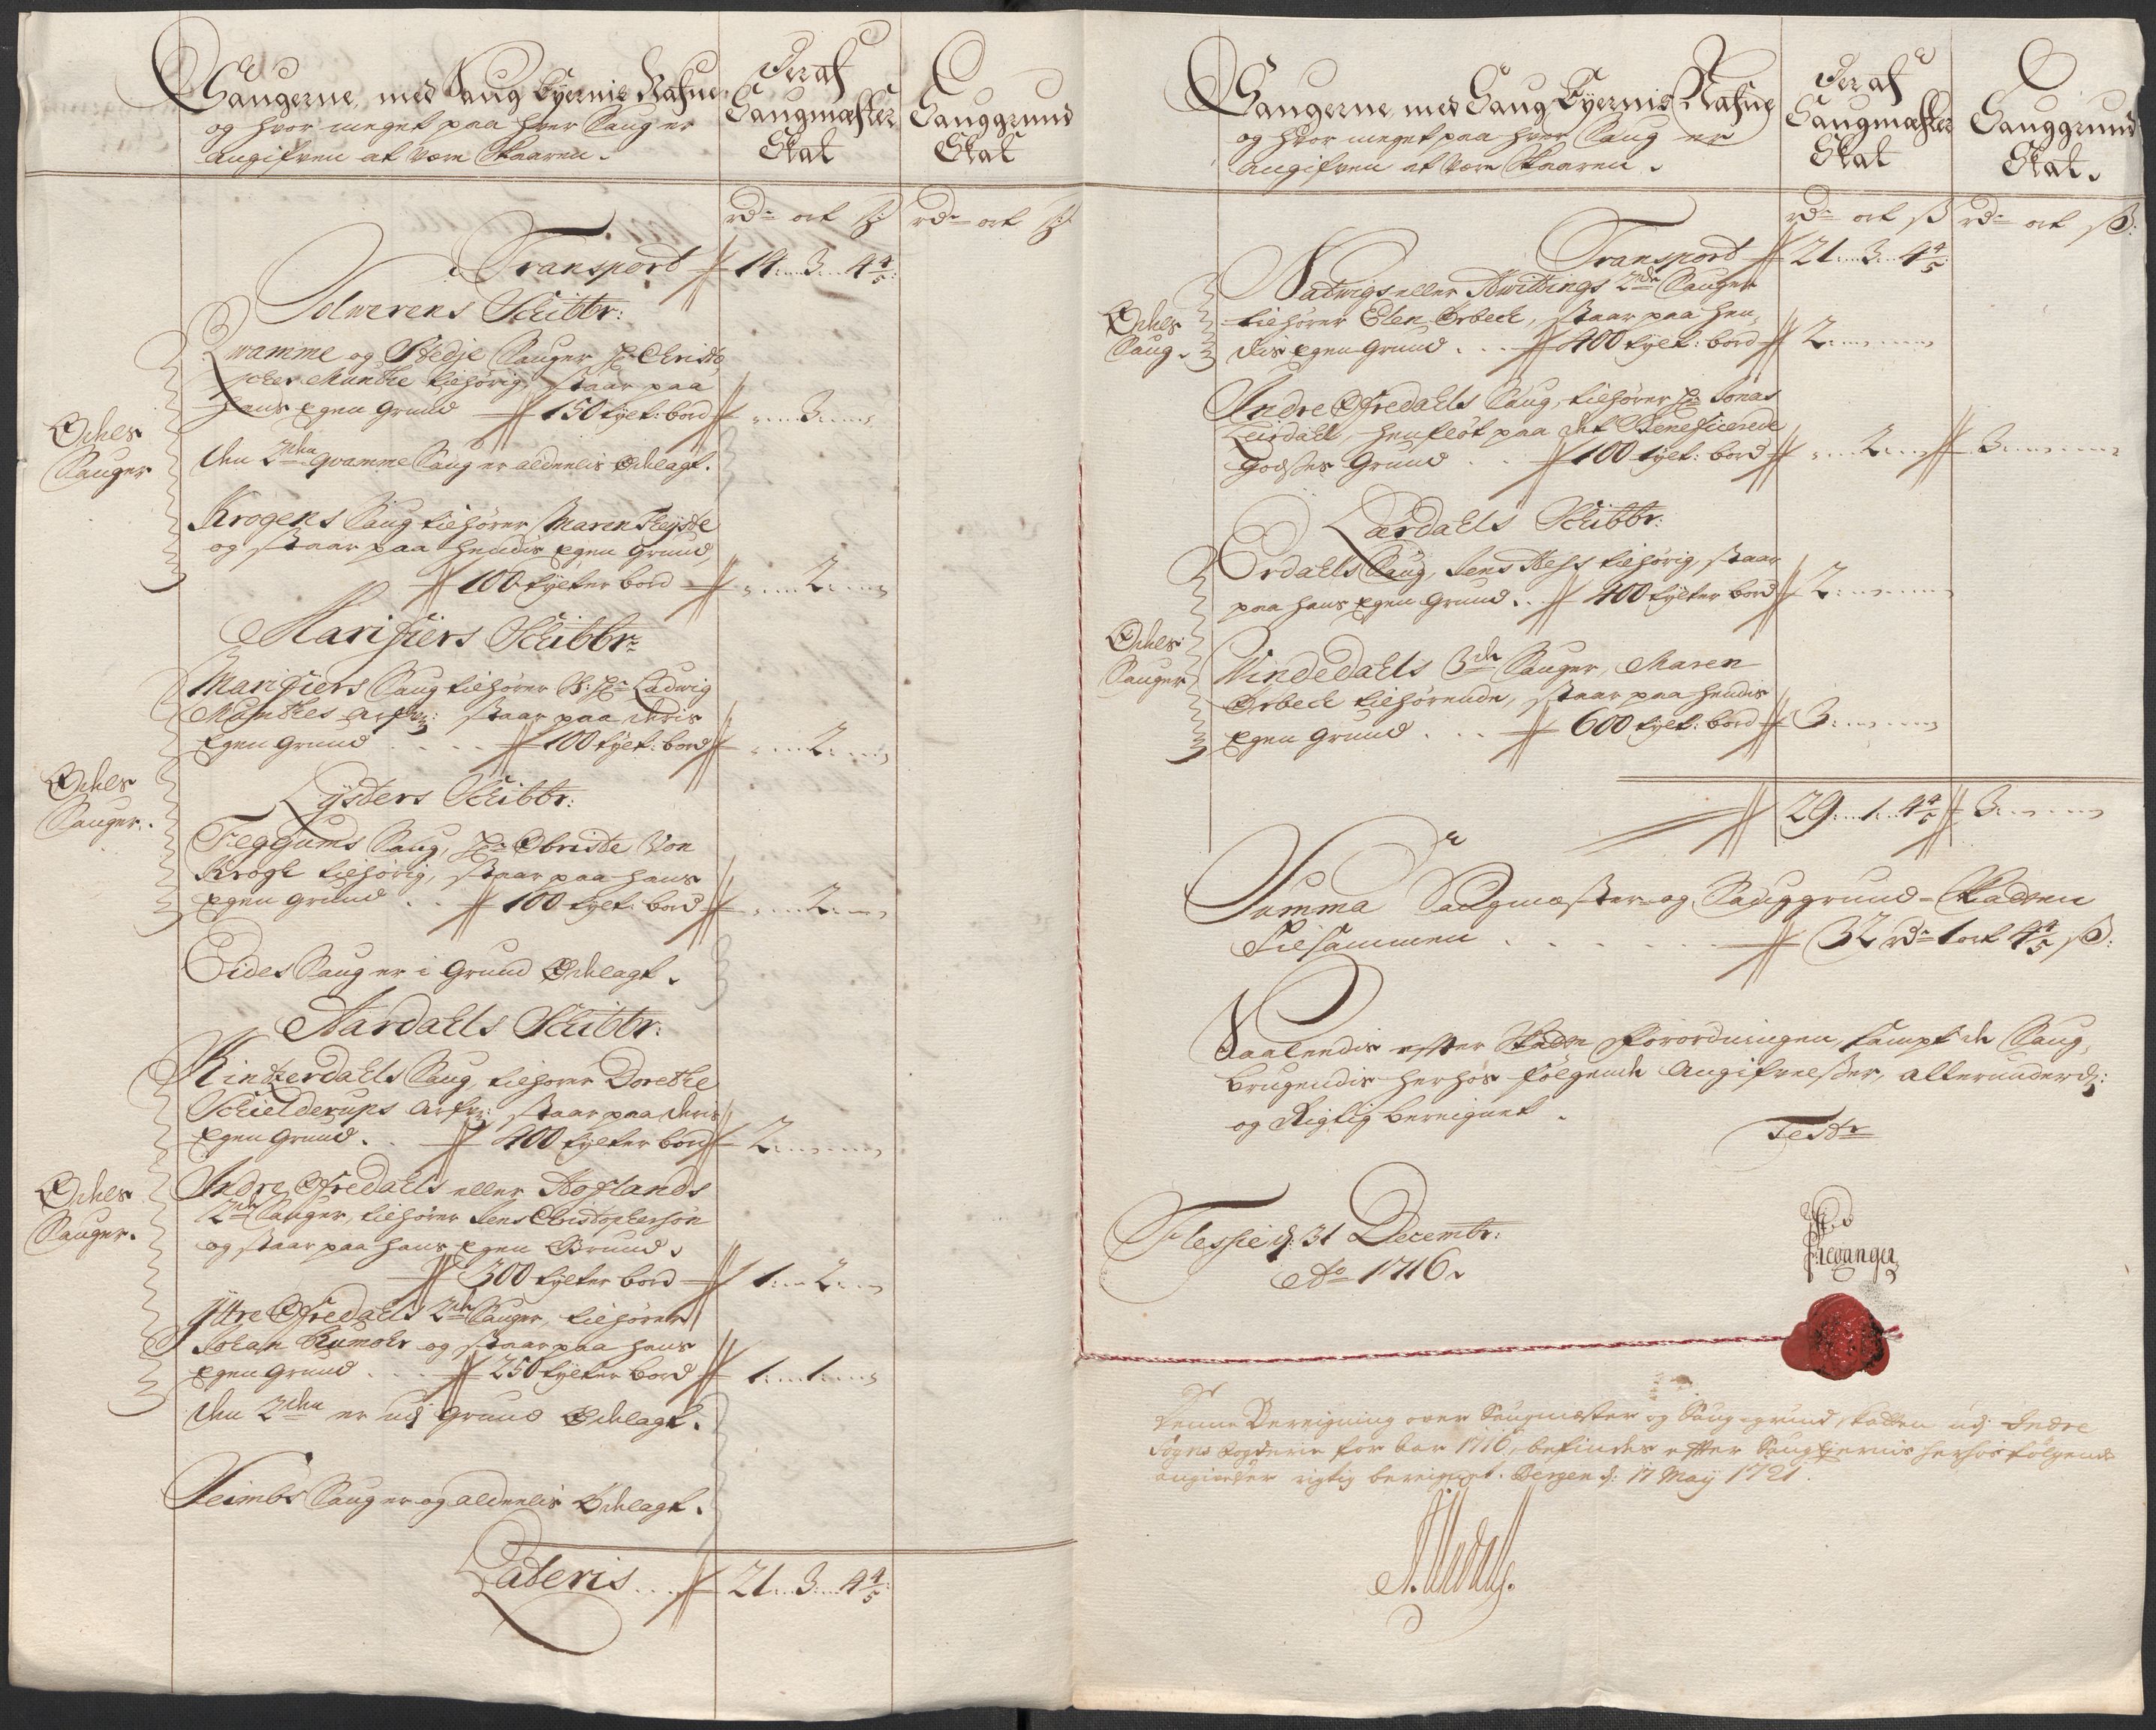 Saugerne, med Saug Eyernis Nafne
og hvor meget paa hver Saug er
angifven at være Skaaren.
Der af
Saugmæster
Skat
Sauggrund
Skat
rd:r ort ß: rd:r ort ß:
Transport 14. 3. 4 4/5
Solwerens Schibbr:
Qvamme og Stedje Sauger Hr Christo
pher Munthe tilhørig, staar paa
hans Egen Grund 150 tylt: bord 3.
Den 2den Qvamme Saug er aldeelis Ødelagt.
Krogens Saug tilhører Maren Heysde
og staar paa hendis Egen Grund,
100 tylter bord 2.
Marifiers Schibbr:
Marifiers Saug tilhører S: Hr Ludwig
Munthes Arfv: staar paa deris
Egen Grund 100 tylt: bord 2.
Lysters Schibbr:
Feggums Saug, Hr Obriste Von
Krogh tilhørig, staar paa hans
Egen Grund 100 tylt: bord 2.
Eides Saug er i Grund Ødelagt.
Aardahls Schibbr:
Hindterdahls Saug, tilhører Dorethe
Schielderups Arfv: staar paa deris
Egen Grund. 400 tylter bord 2.
Indre Ofredahls eller Hoflands
2de Sauger, tilhører Jens Christophersøn
og staar paa hans Egen Grund.
300 tylter bord 1. 2.
Yttre Ofredahls 2de Sauger, tilhører
Johan Rumohr og staar paa hans
Egen Grund 250 tylter bord 1. 1.
Den 2den er udj Grund Ødelagt.
Seimbs Saug er og aldeelis Ødelagt.
Lateris 21. 3. 4 4/5
Odels
Sauger
Odels
Sauger.
Odels
Sauger.
Saugerne med Saug Eyernis Nafne
og hvor meget paa hver Saug er
angifven at være Skaaren.
Der af
Saugmæster
Skat
Sauggrund
Skat.
rd:r ort ß rd:r ort ß:
Transport 21. 3. 4 4/5
Natwigs eller Awittings 2de Sauger
tilhører Elen Orbech, staar paa hen-
dis Egen Grund 400 tylt: bord 2.
Odels
Saug.
Indre Ofredahls Saug, tilhører Hr Jonas
Leirdahl, henfløt paa det Beneficerede
Godses Grund 100 tylt: bord 2. 3.
Lærdahls Schibbr:
Erdahls Saug, Jens Hess tilhørig, staar
paa hans Egen Grund. 400 tylter bord 2.
Odels
Sauger
Windedahls 3de Sauger, Maren
Orbech tilhørende, staar paa hendis
Egen Grund 600 tylt: bord 3.
29. 1. 4 4/5 3.
Summa Saugmæster- og Sauggrund-Skatten
Tilsammen 32 rd:r 1 ort 4 4/5 ß:
Saaleedis efter Skatte Forordningen, sampt de Saug-
brugendis herhos følgende Angifvelser, allerunderd:
og Rigtig bereignet.
Test:r
Flessie d: 31 Decembr:
Ao 1716.
Denne Bereigning over Saugmæster og Saug-grund, skatten udj Indre
Sogns Fogderie for Aar 1716, befindes efter Saugejernis herhos følgende
angivelser rigtig bereignet. Bergen d: 17 Maij 1721.